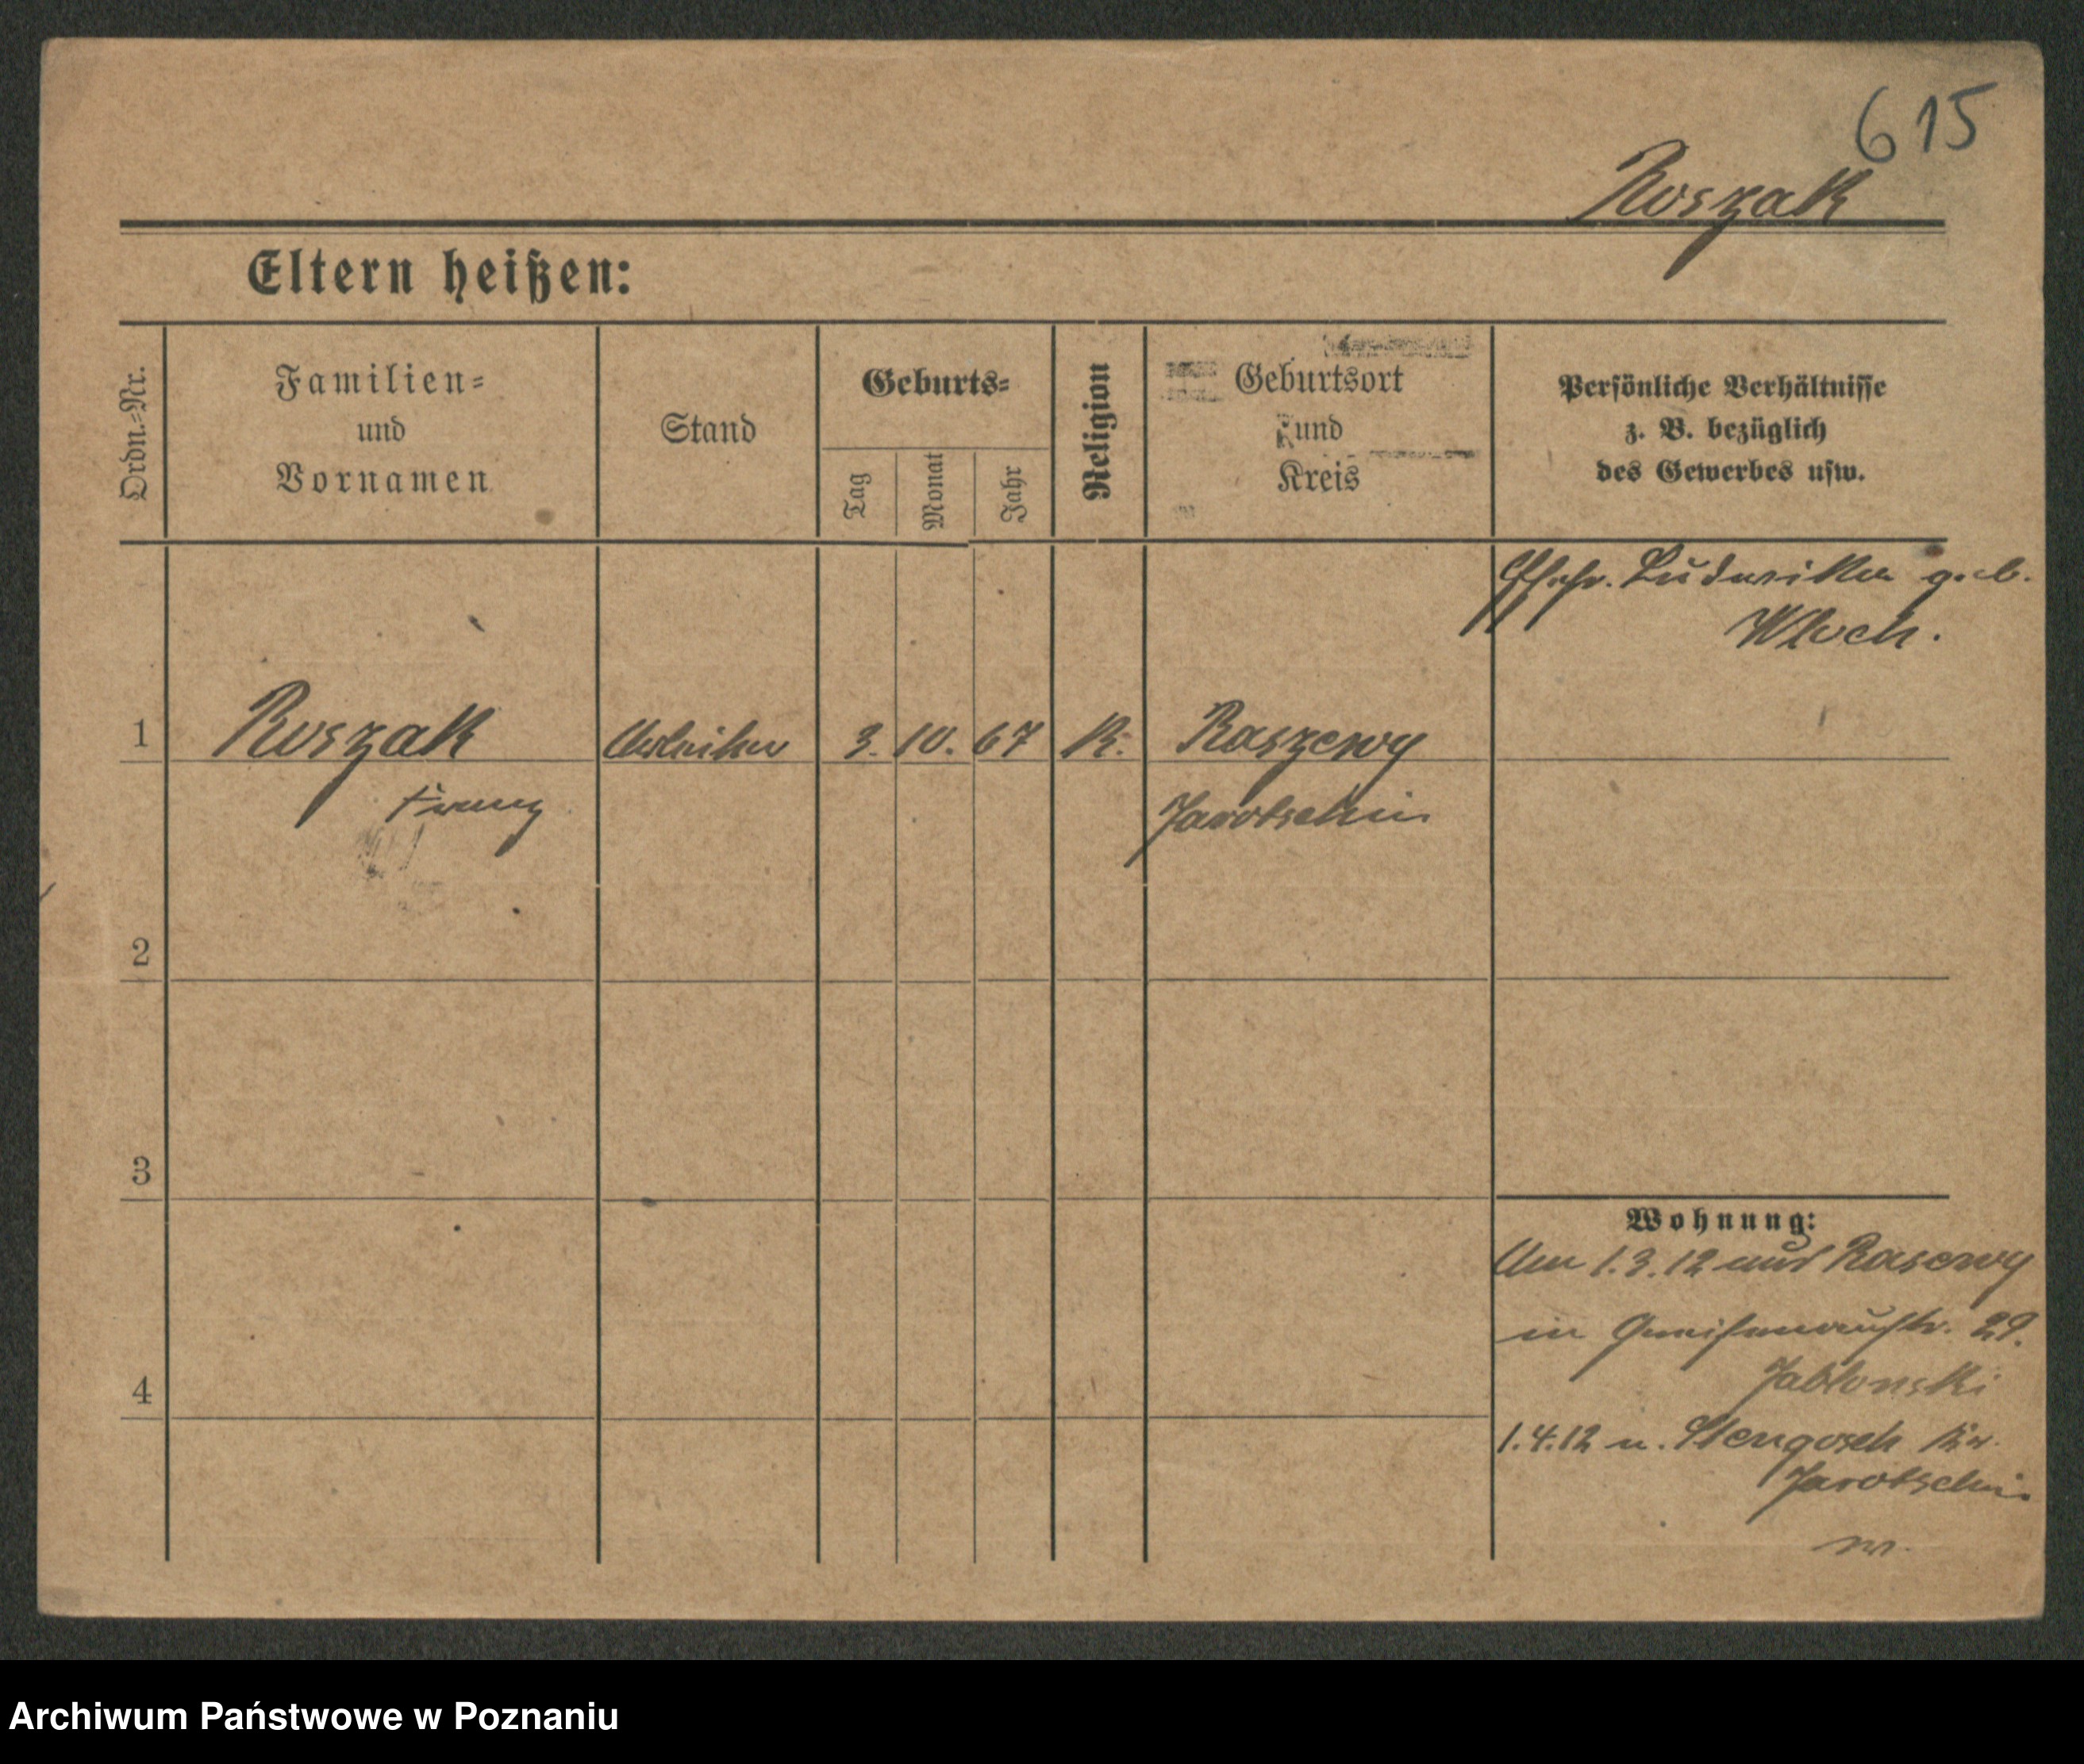 615
Roszak
Eltern heißen:
Ordn.=Nr.
Familien=
und
Vornamen
Stand
Geburts=
Tag
Monat
Jahr
Religion
Geburtsort
und
Kreis
Persönliche Verhältnisse
z. B. bezüglich
des Gewerbes usw.
Ehefr. Ludwika geb.
Wloch.
1
Roszak
Arbeiter
3. 10. 67
K.
Raszewy
Franz
Jarotschin
2
3
4
Wohnung:
Am 1.3.12 aus Rasewy
in Gneisenaustr. 29.
Jablonski
1.4.12 n. Stengosch Kr.
Jarotschin
Archiwum Państwowe w Poznaniu